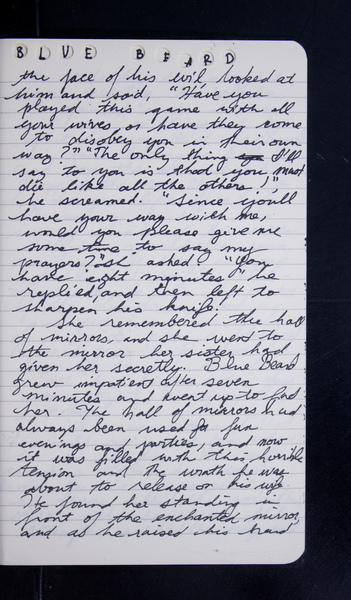 BLUE BEARD
the face of his evil, looked at
him and said, "Have you
played this game with all
your wives or have they come
to disobey you in their own
way?" "The only thing I'll
say to you is that you must
die like all the others!",
he screamed. "Since you'll
have your way with me,
would you please give me
some time to say my
prayers?" she asked. "You
have eight minutes" he
replied, and then left to
sharpen his knife.
She remembered the hall
of mirrors, and she went to
the mirror her sister had
given her secretly. Blue Beard
grew impatient after seven
minutes and went up to find
her. The hall of mirrors had
always been used for fun
evenings and parties, and now
it was filled with this horrible
tension and the wrath he was
about to release on his wife
He found her standing in
front of the enchanted mirror,
and as he raised his hand